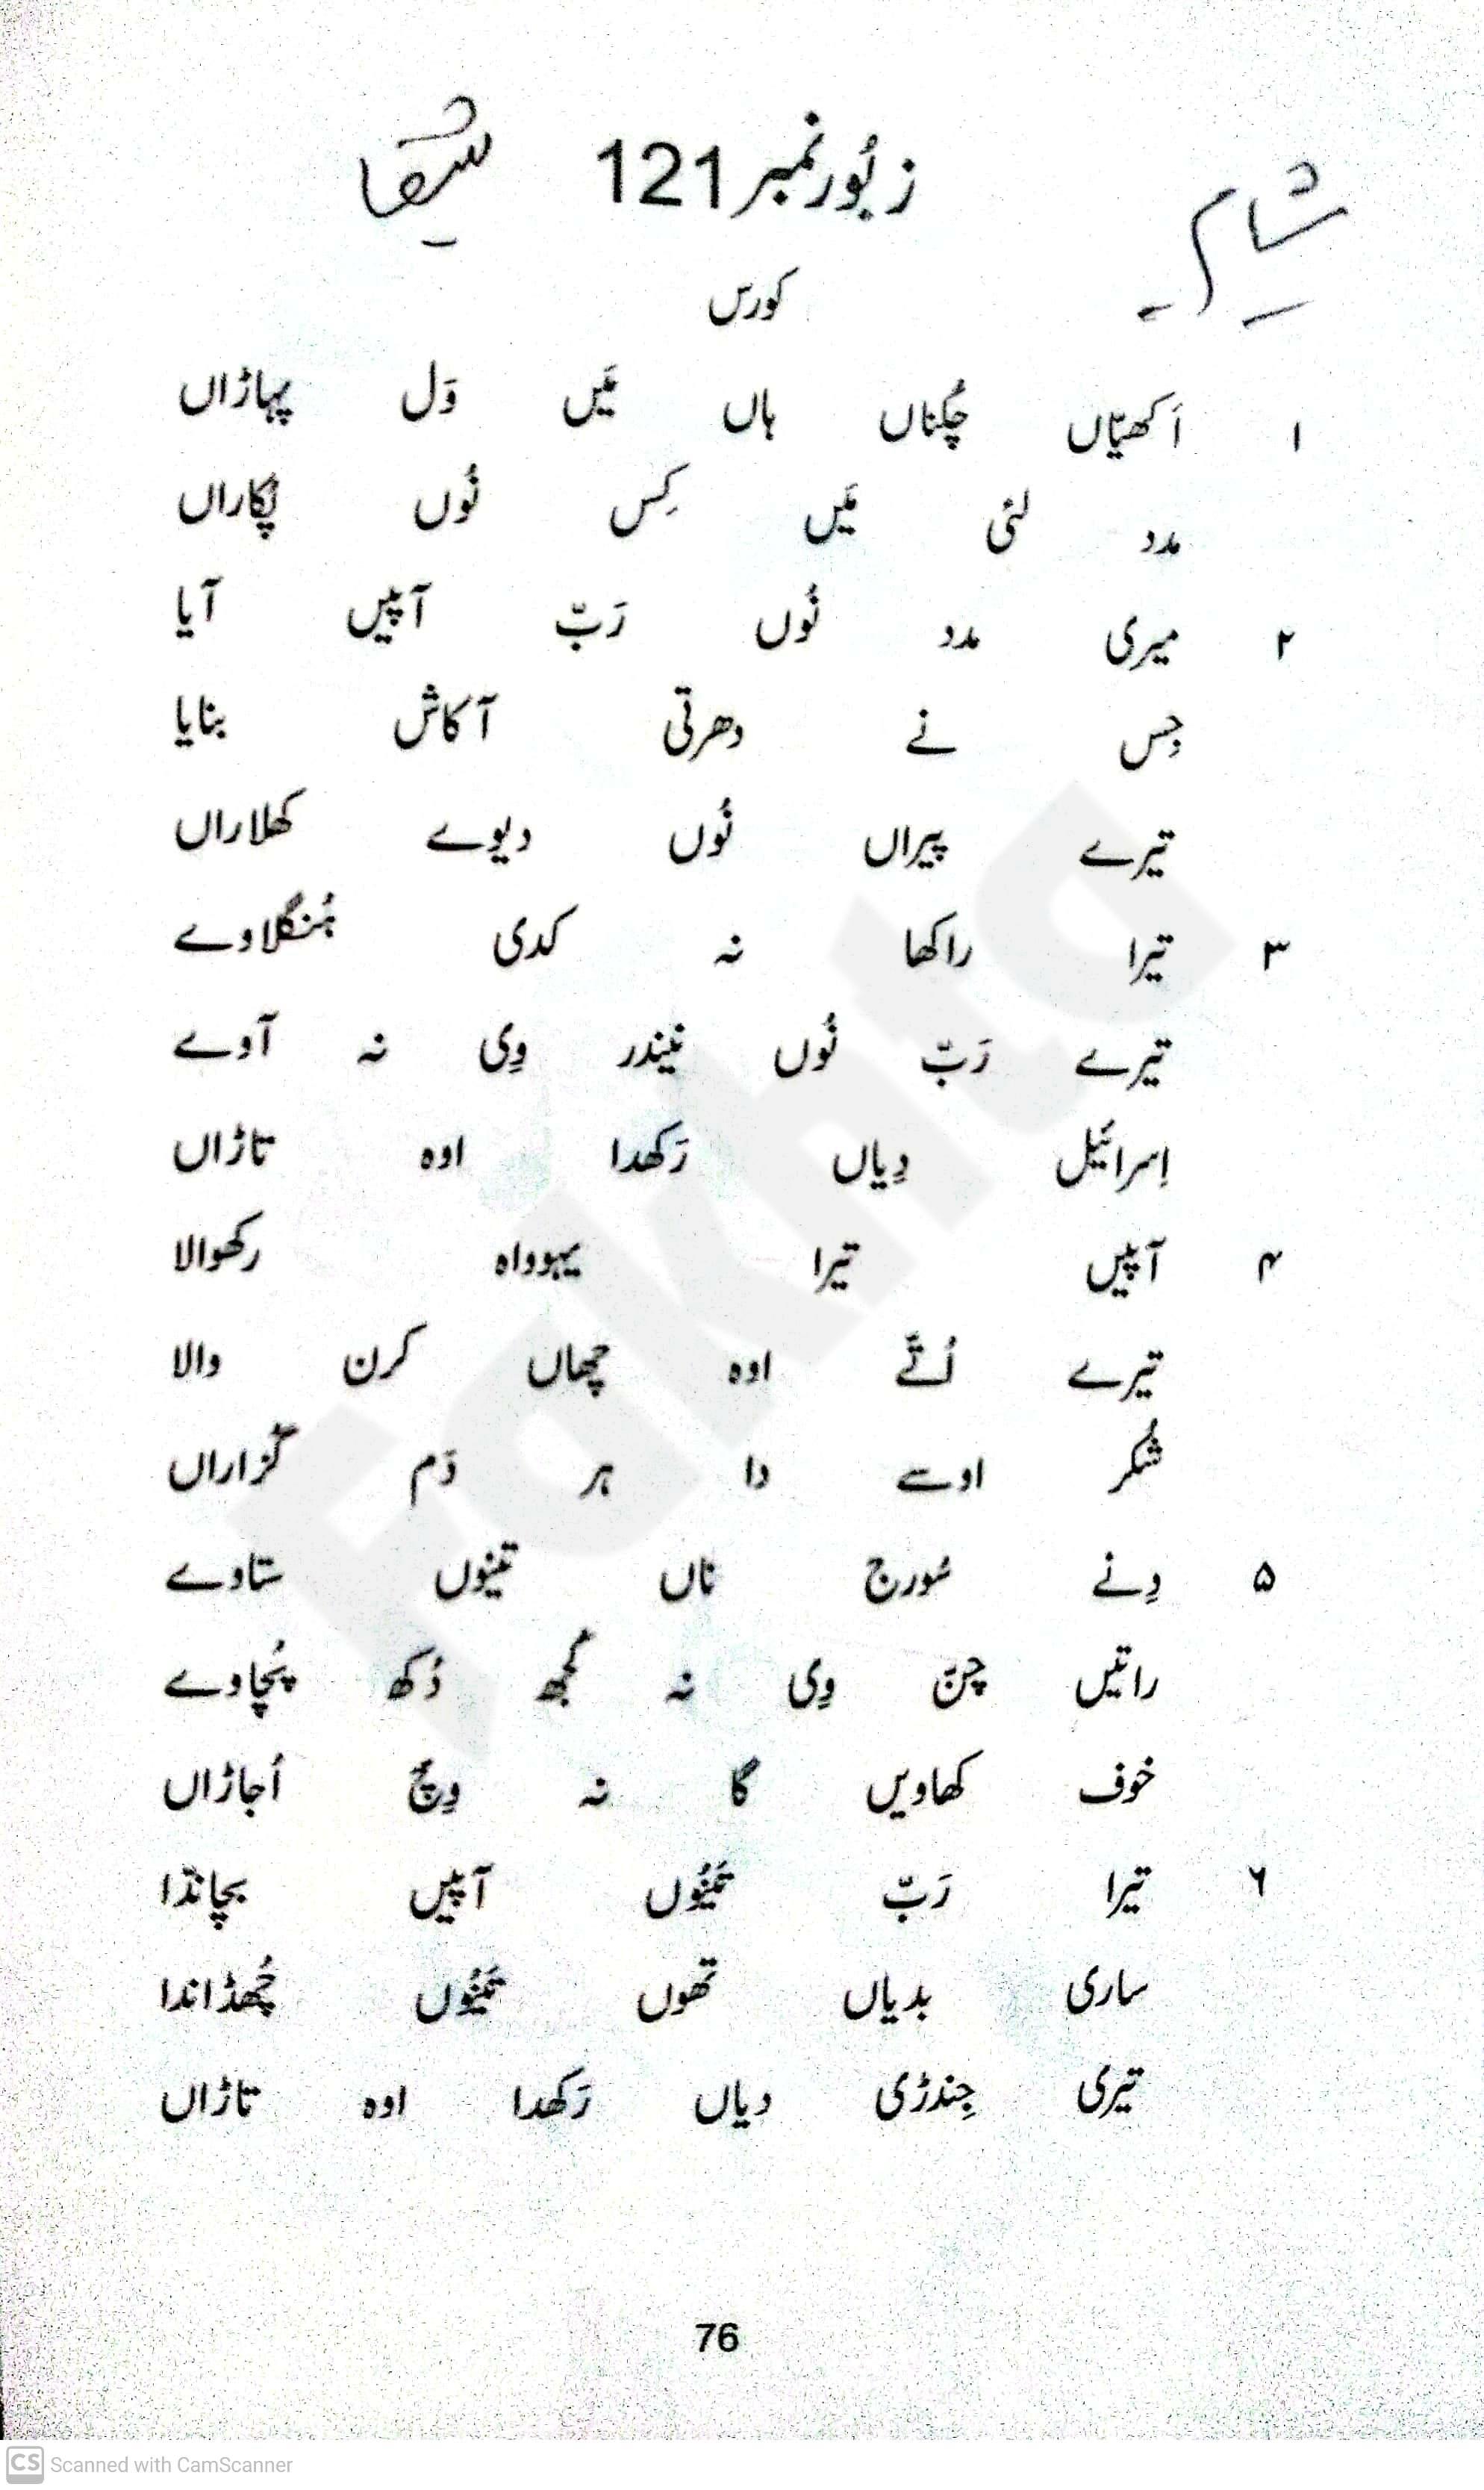 زبُور نمبر 121
شام
شفا
کورس
۱ اَکھیّاں چُکناں ہاں مَیں وَل پہاڑاں
مدد لئی مَیں کِس نُوں پُکاراں
۲ میری مدد نُوں رَبّ آپیں آیا
جِس نے دھرتی آکاش بنایا
تیرے پیراں نُوں دیوے کھلاراں
۳ تیرا راکھا نہ کدی ہُنگلاوے
تیرے رَبّ نُوں نیندر وِی نہ آوے
اِسرائیل دِیاں رَکھدا اوہ تاڑاں
۴ آپیں تیرا یہوواہ رکھوالا
تیرے اُتّے اوہ چھاں کرن والا
شُکر اوسے دا ہر دَم گُزاراں
۵ دِنے سُورج ناں تینوں ستاوے
راتیں چنّ وِی نہ کُجھ دُکھ پُچاوے
خوف کھاویں گا نہ وِچّ اُجاڑاں
۶ تیرا رَبّ تَینُوں آپیں بچانڈا
ساری بدیاں تھوں تَینُوں چُھڈاندا
تیری جِندڑی دیاں رَکھدا اوہ تاڑاں
76
Fakhta
CS Scanned with CamScanner